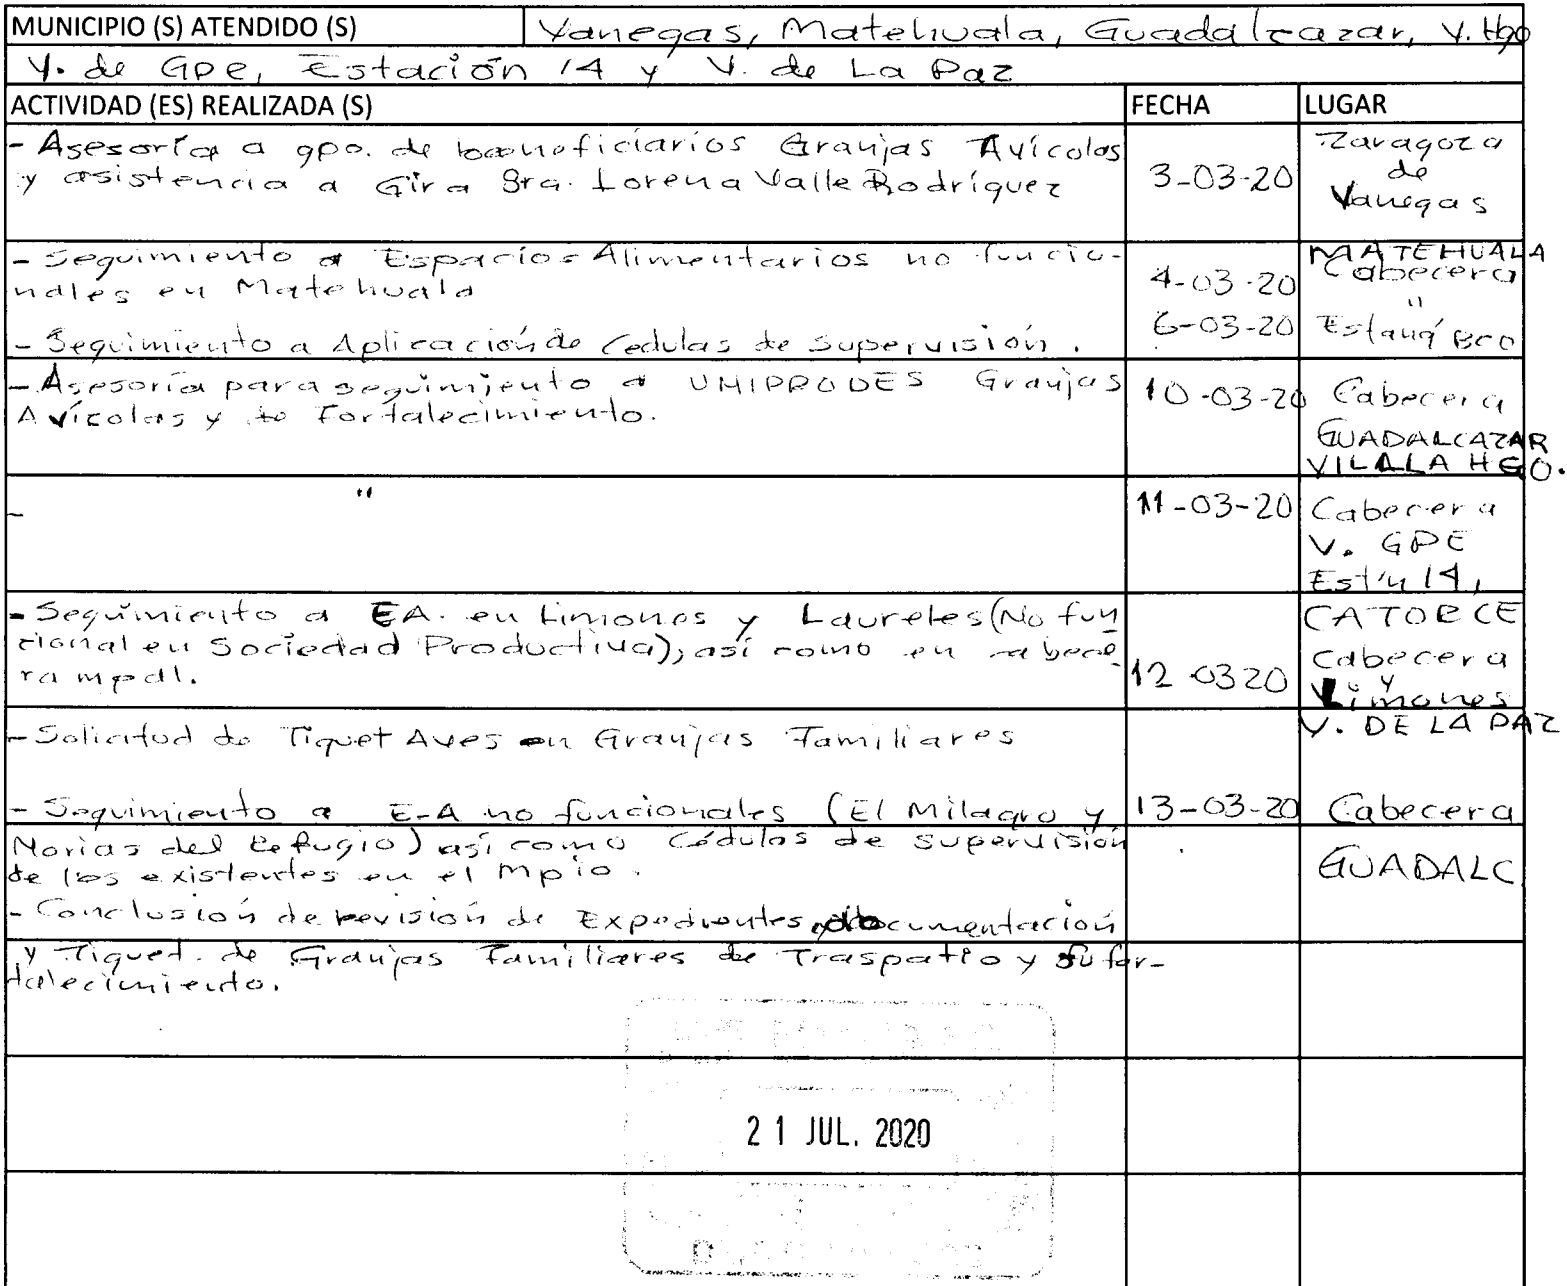 MUNICIPIO (S) ATENDIDO (S) Vanegas, Matehuala, Guadalcazar, V. Hgo
V. de GPE, Estación 14 y V. de La Paz
ACTIVIDAD (ES) REALIZADA (S) FECHA LUGAR
- Asesoría a gpo. de beneficiarios Granjas Avícolas
y asistencia a Gira Sra. Lorena Valle Rodríguez
3-03-20
Zaragoza
de
Vanegas
- Seguimiento a Espacios Alimentarios no funcio-
nales en Matehuala
4-03-20
MATEHUALA
Cabecera
"
- Seguimiento a Aplicación de Cedulas de Supervisión.
6-03-20
Estanq Bco
- Asesoría para seguimiento a UNIPRODES Granjas
Avícolas y Fortalecimiento.
10-03-20
Cabecera
GUADALCAZAR
VILLA HGO.
- "
11-03-20
Cabecera
V. GPE
Est'n 14,
- Seguimiento a EA. en Limones y Laureles (No fun
cional en Sociedad Productiva), así como en cabece-
ra mpal.
12 0320
CATORCE
Cabecera
y
Limones
- Solicitud de Tiquet Aves en Granjas Familiares
V. DE LA PAZ
- Seguimiento a E-A no funcionales (El Milagro y
13-03-20
Cabecera
Norias del Refugio) así como Cédulas de Supervisión
de los existentes en el Mpio.
GUADALC
- Conclusión de revisión de Expedientes, documentación
y Tiquet. de Granjas Familiares de Traspatio y su for-
talecimiento.
21 JUL. 2020